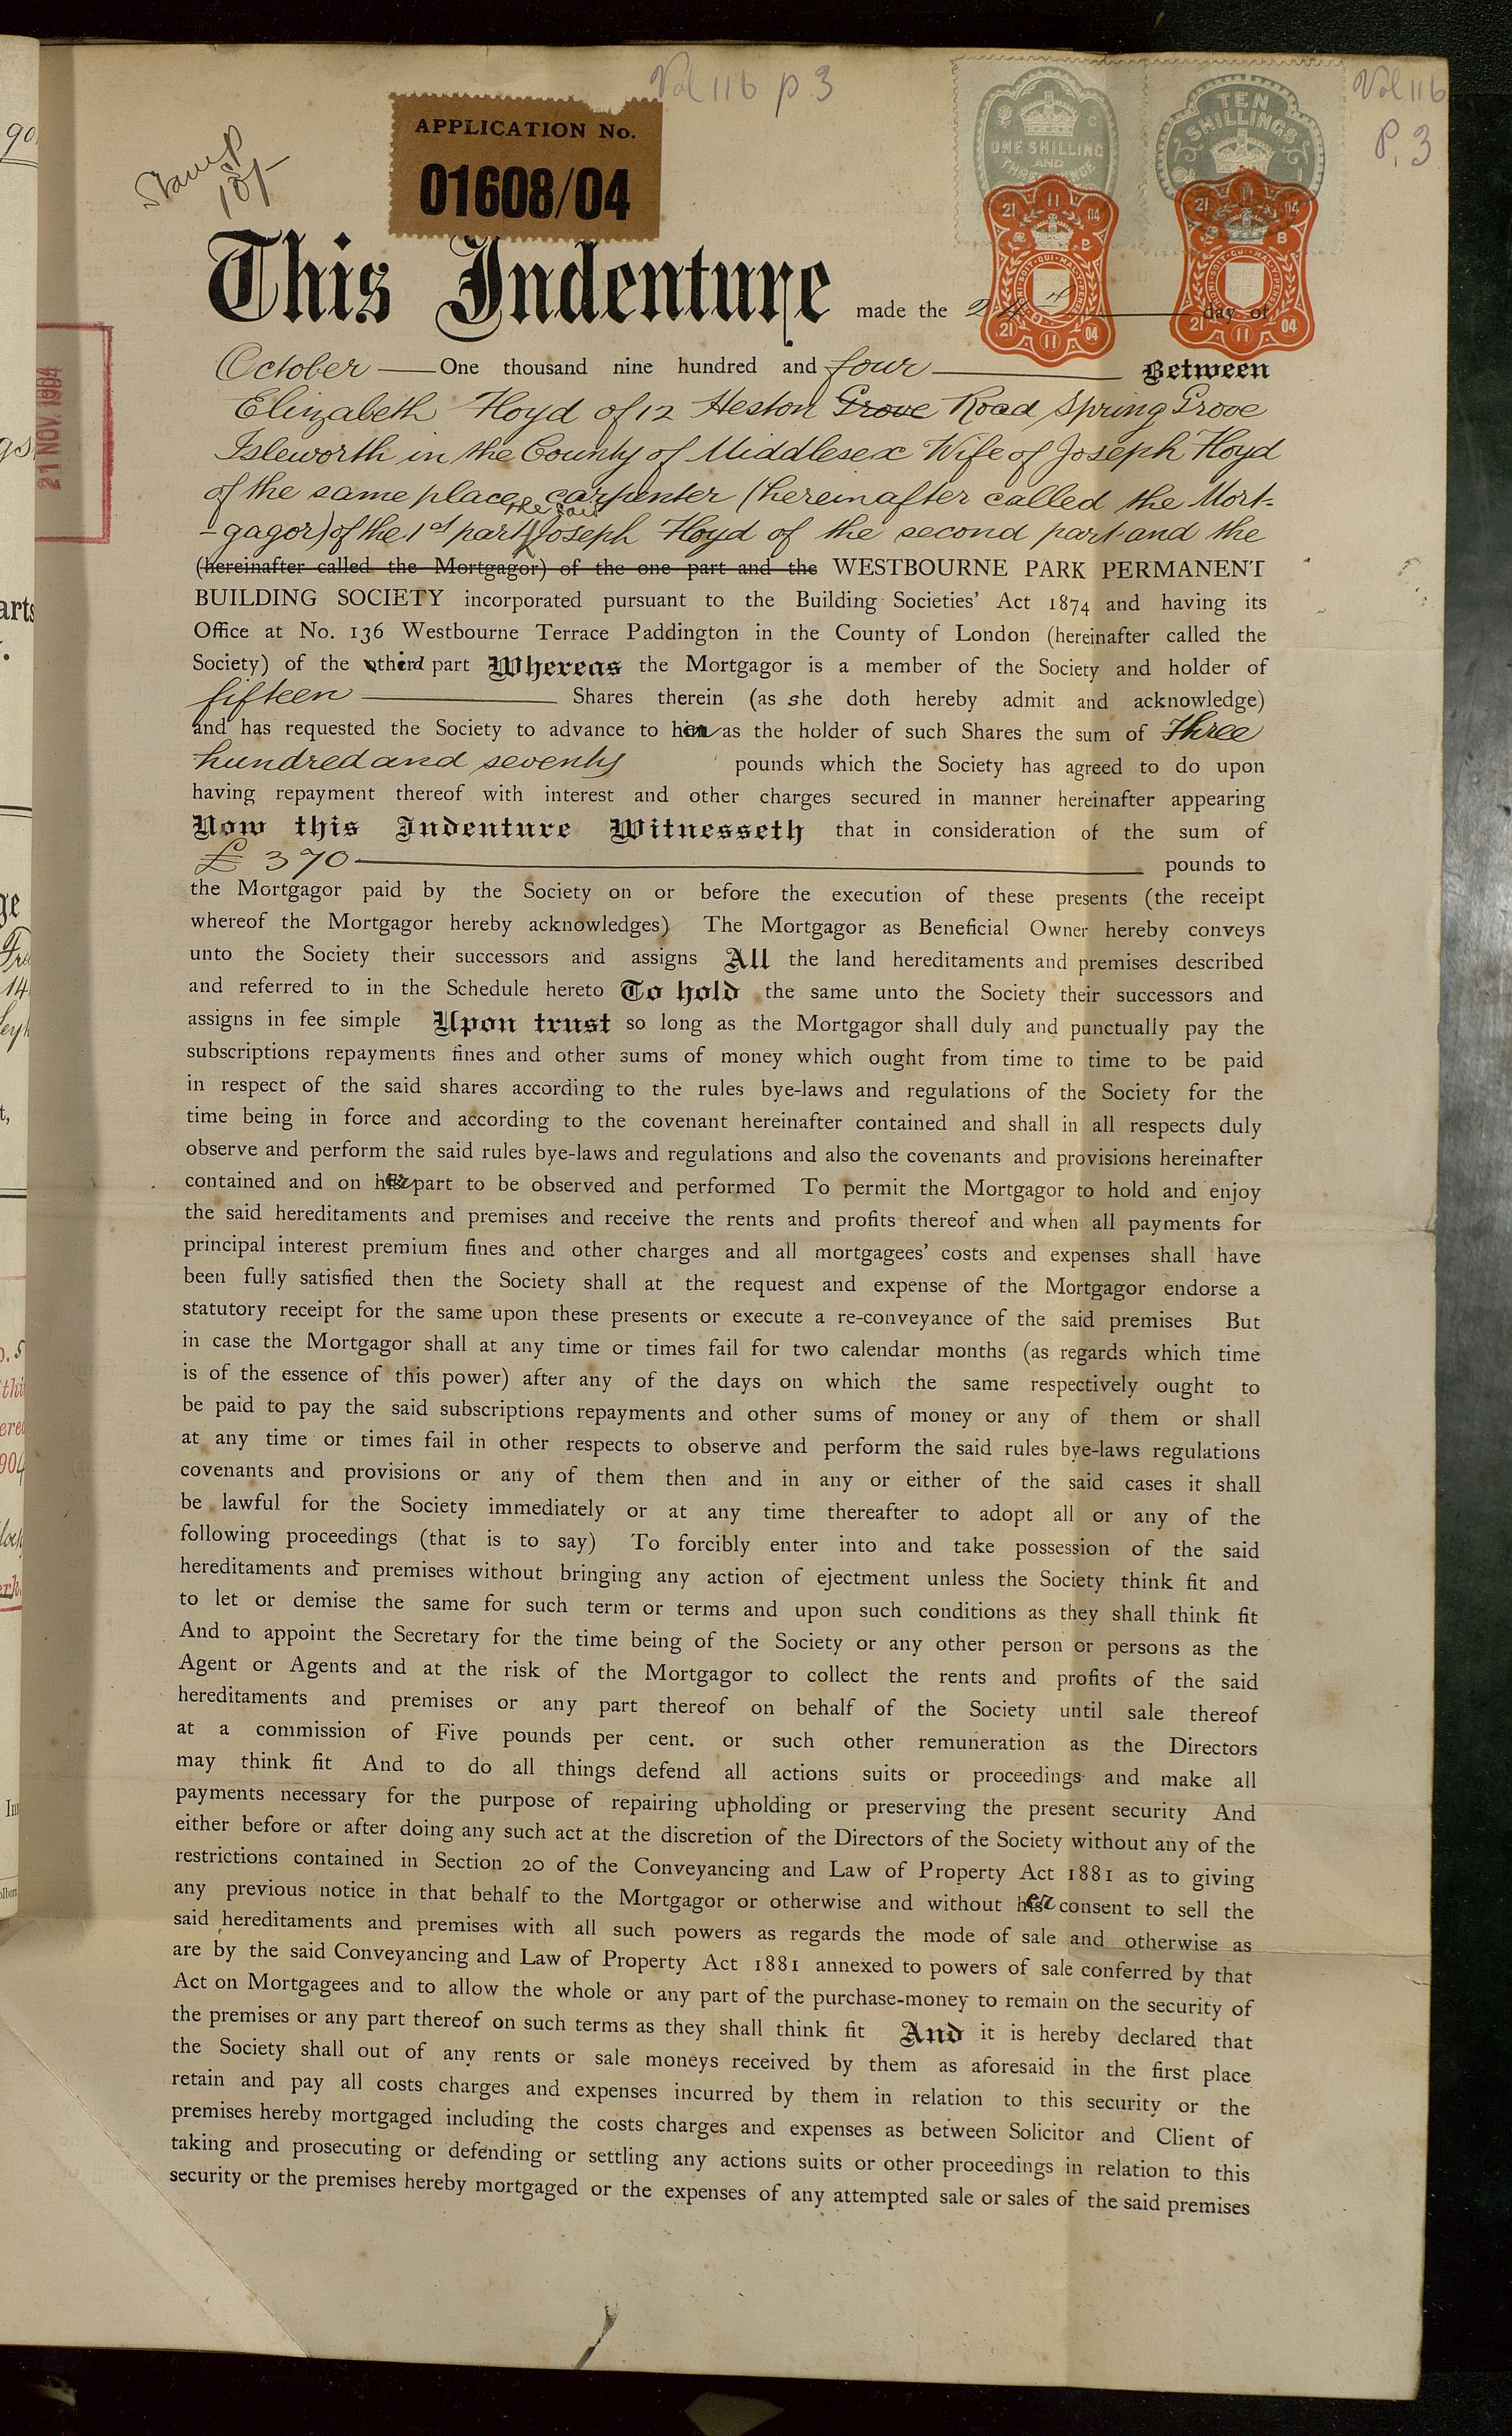 Vol 116 p 3
Vol 116
P. 3
Stamp
10/-
APPLICATION No.
01608/04
ONE SHILLING
AND
THREEPENCE
TEN
SHILLINGS
21 11 04
21 11 04
21 11 04
21 11 04
21 NOV. 1904
This Indenture made the 24th day of
October One thousand nine hundred and four Between
Elizabeth Floyd of 12 Heston Grove Road Spring Grove
Isleworth in the County of Middlesex Wife of Joseph Floyd
of the same place carpenter (hereinafter called the Mort-
-gagor) of the 1st part the said Joseph Floyd of the second part and the
(hereinafter called the Mortgagor) of the one part and the WESTBOURNE PARK PERMANENT
BUILDING SOCIETY incorporated pursuant to the Building Societies' Act 1874 and having its
Office at No. 136 Westbourne Terrace Paddington in the County of London (hereinafter called the
Society) of the third part Whereas the Mortgagor is a member of the Society and holder of
fifteen Shares therein (as she doth hereby admit and acknowledge)
and has requested the Society to advance to her as the holder of such Shares the sum of Three
hundred and seventy pounds which the Society has agreed to do upon
having repayment thereof with interest and other charges secured in manner hereinafter appearing
Now this Indenture Witnesseth that in consideration of the sum of
£ 370 pounds to
the Mortgagor paid by the Society on or before the execution of these presents (the receipt
whereof the Mortgagor hereby acknowledges) The Mortgagor as Beneficial Owner hereby conveys
unto the Society their successors and assigns All the land hereditaments and premises described
and referred to in the Schedule hereto To hold the same unto the Society their successors and
assigns in fee simple Upon trust so long as the Mortgagor shall duly and punctually pay the
subscriptions repayments fines and other sums of money which ought from time to time to be paid
in respect of the said shares according to the rules bye-laws and regulations of the Society for the
time being in force and according to the covenant hereinafter contained and shall in all respects duly
observe and perform the said rules bye-laws and regulations and also the covenants and provisions hereinafter
contained and on her part to be observed and performed To permit the Mortgagor to hold and enjoy
the said hereditaments and premises and receive the rents and profits thereof and when all payments for
principal interest premium fines and other charges and all mortgagees' costs and expenses shall have
been fully satisfied then the Society shall at the request and expense of the Mortgagor endorse a
statutory receipt for the same upon these presents or execute a re-conveyance of the said premises But
in case the Mortgagor shall at any time or times fail for two calendar months (as regards which time
is of the essence of this power) after any of the days on which the same respectively ought to
be paid to pay the said subscriptions repayments and other sums of money or any of them or shall
at any time or times fail in other respects to observe and perform the said rules bye-laws regulations
covenants and provisions or any of them then and in any or either of the said cases it shall
be lawful for the Society immediately or at any time thereafter to adopt all or any of the
following proceedings (that is to say) To forcibly enter into and take possession of the said
hereditaments and premises without bringing any action of ejectment unless the Society think fit and
to let or demise the same for such term or terms and upon such conditions as they shall think fit
And to appoint the Secretary for the time being of the Society or any other person or persons as the
Agent or Agents and at the risk of the Mortgagor to collect the rents and profits of the said
hereditaments and premises or any part thereof on behalf of the Society until sale thereof
at a commission of Five pounds per cent. or such other remuneration as the Directors
may think fit And to do all things defend all actions suits or proceedings and make all
payments necessary for the purpose of repairing upholding or preserving the present security And
either before or after doing any such act at the discretion of the Directors of the Society without any of the
restrictions contained in Section 20 of the Conveyancing and Law of Property Act 1881 as to giving
any previous notice in that behalf to the Mortgagor or otherwise and without her consent to sell the
said hereditaments and premises with all such powers as regards the mode of sale and otherwise as
are by the said Conveyancing and Law of Property Act 1881 annexed to powers of sale conferred by that
Act on Mortgagees and to allow the whole or any part of the purchase-money to remain on the security of
the premises or any part thereof on such terms as they shall think fit And it is hereby declared that
the Society shall out of any rents or sale moneys received by them as aforesaid in the first place
retain and pay all costs charges and expenses incurred by them in relation to this security or the
premises hereby mortgaged including the costs charges and expenses as between Solicitor and Client of
taking and prosecuting or defending or settling any actions suits or other proceedings in relation to this
security or the premises hereby mortgaged or the expenses of any attempted sale or sales of the said premises